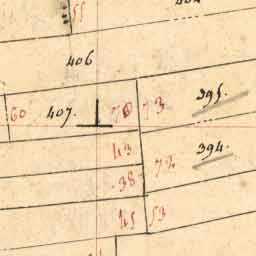 55
406
60 407. 70 73 395.
43 72 394.
38
45 53